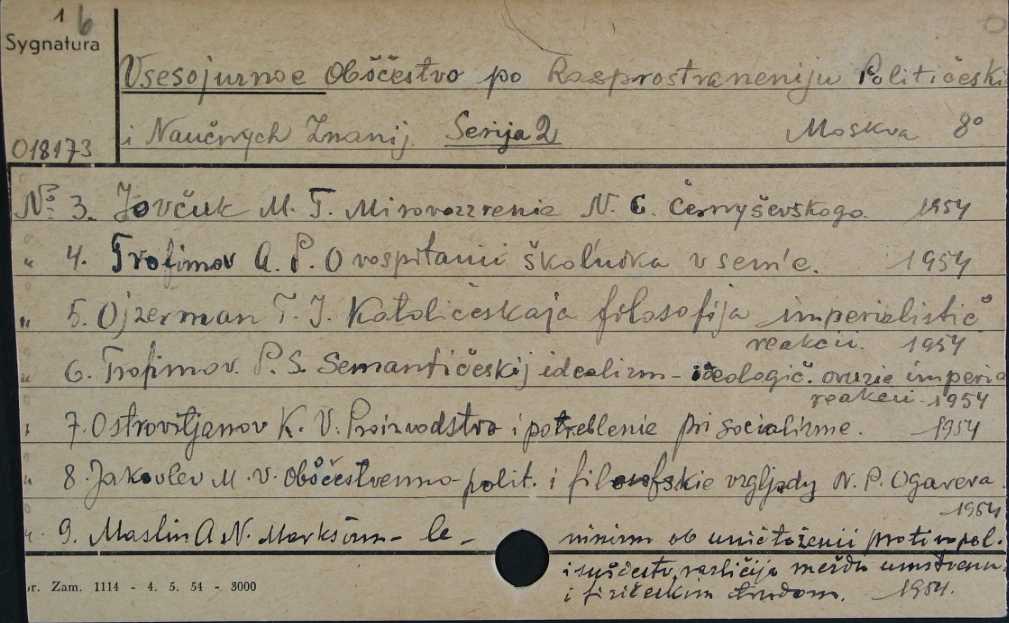 1 6
Sygnatura
Vsesojurnoe Obščestvo po Rasprostraneniju Političeski
i Naučnych Znanij. Serija 2 Moskva 8°
018173
№ 3. Jovčuk M. T. Mirovozzrenie N. G. Černyševskogo. 1954
" 4. Trofimov A. P. O vospitanii škol'nika v sem'e. 1954
" 5. Ojzerman T. J. Katoličeskaja filosofija imperialistič
reakcii. 1954
" 6. Trofimov. P. S. Semantičeskij idealizm - ideologič. oruzie imperia
reakcii 1954
" 7. Ostrovitjanov K. V. Proizvodstvo i potreblenie pri socializme. 1954
" 8. Jakovlev M. V. Obščestvenno-polit. i filosofskie vzgljady N. P. Ogareva.
1954
" 9. Maslin A N. Marksizm - le - ninizm ob uničtoženii protivopol.
i suščestv. različija meždu umstvenn.
i fizičeskim trudom. 1954.
Zam. 1114 - 4. 5. 54 - 3000